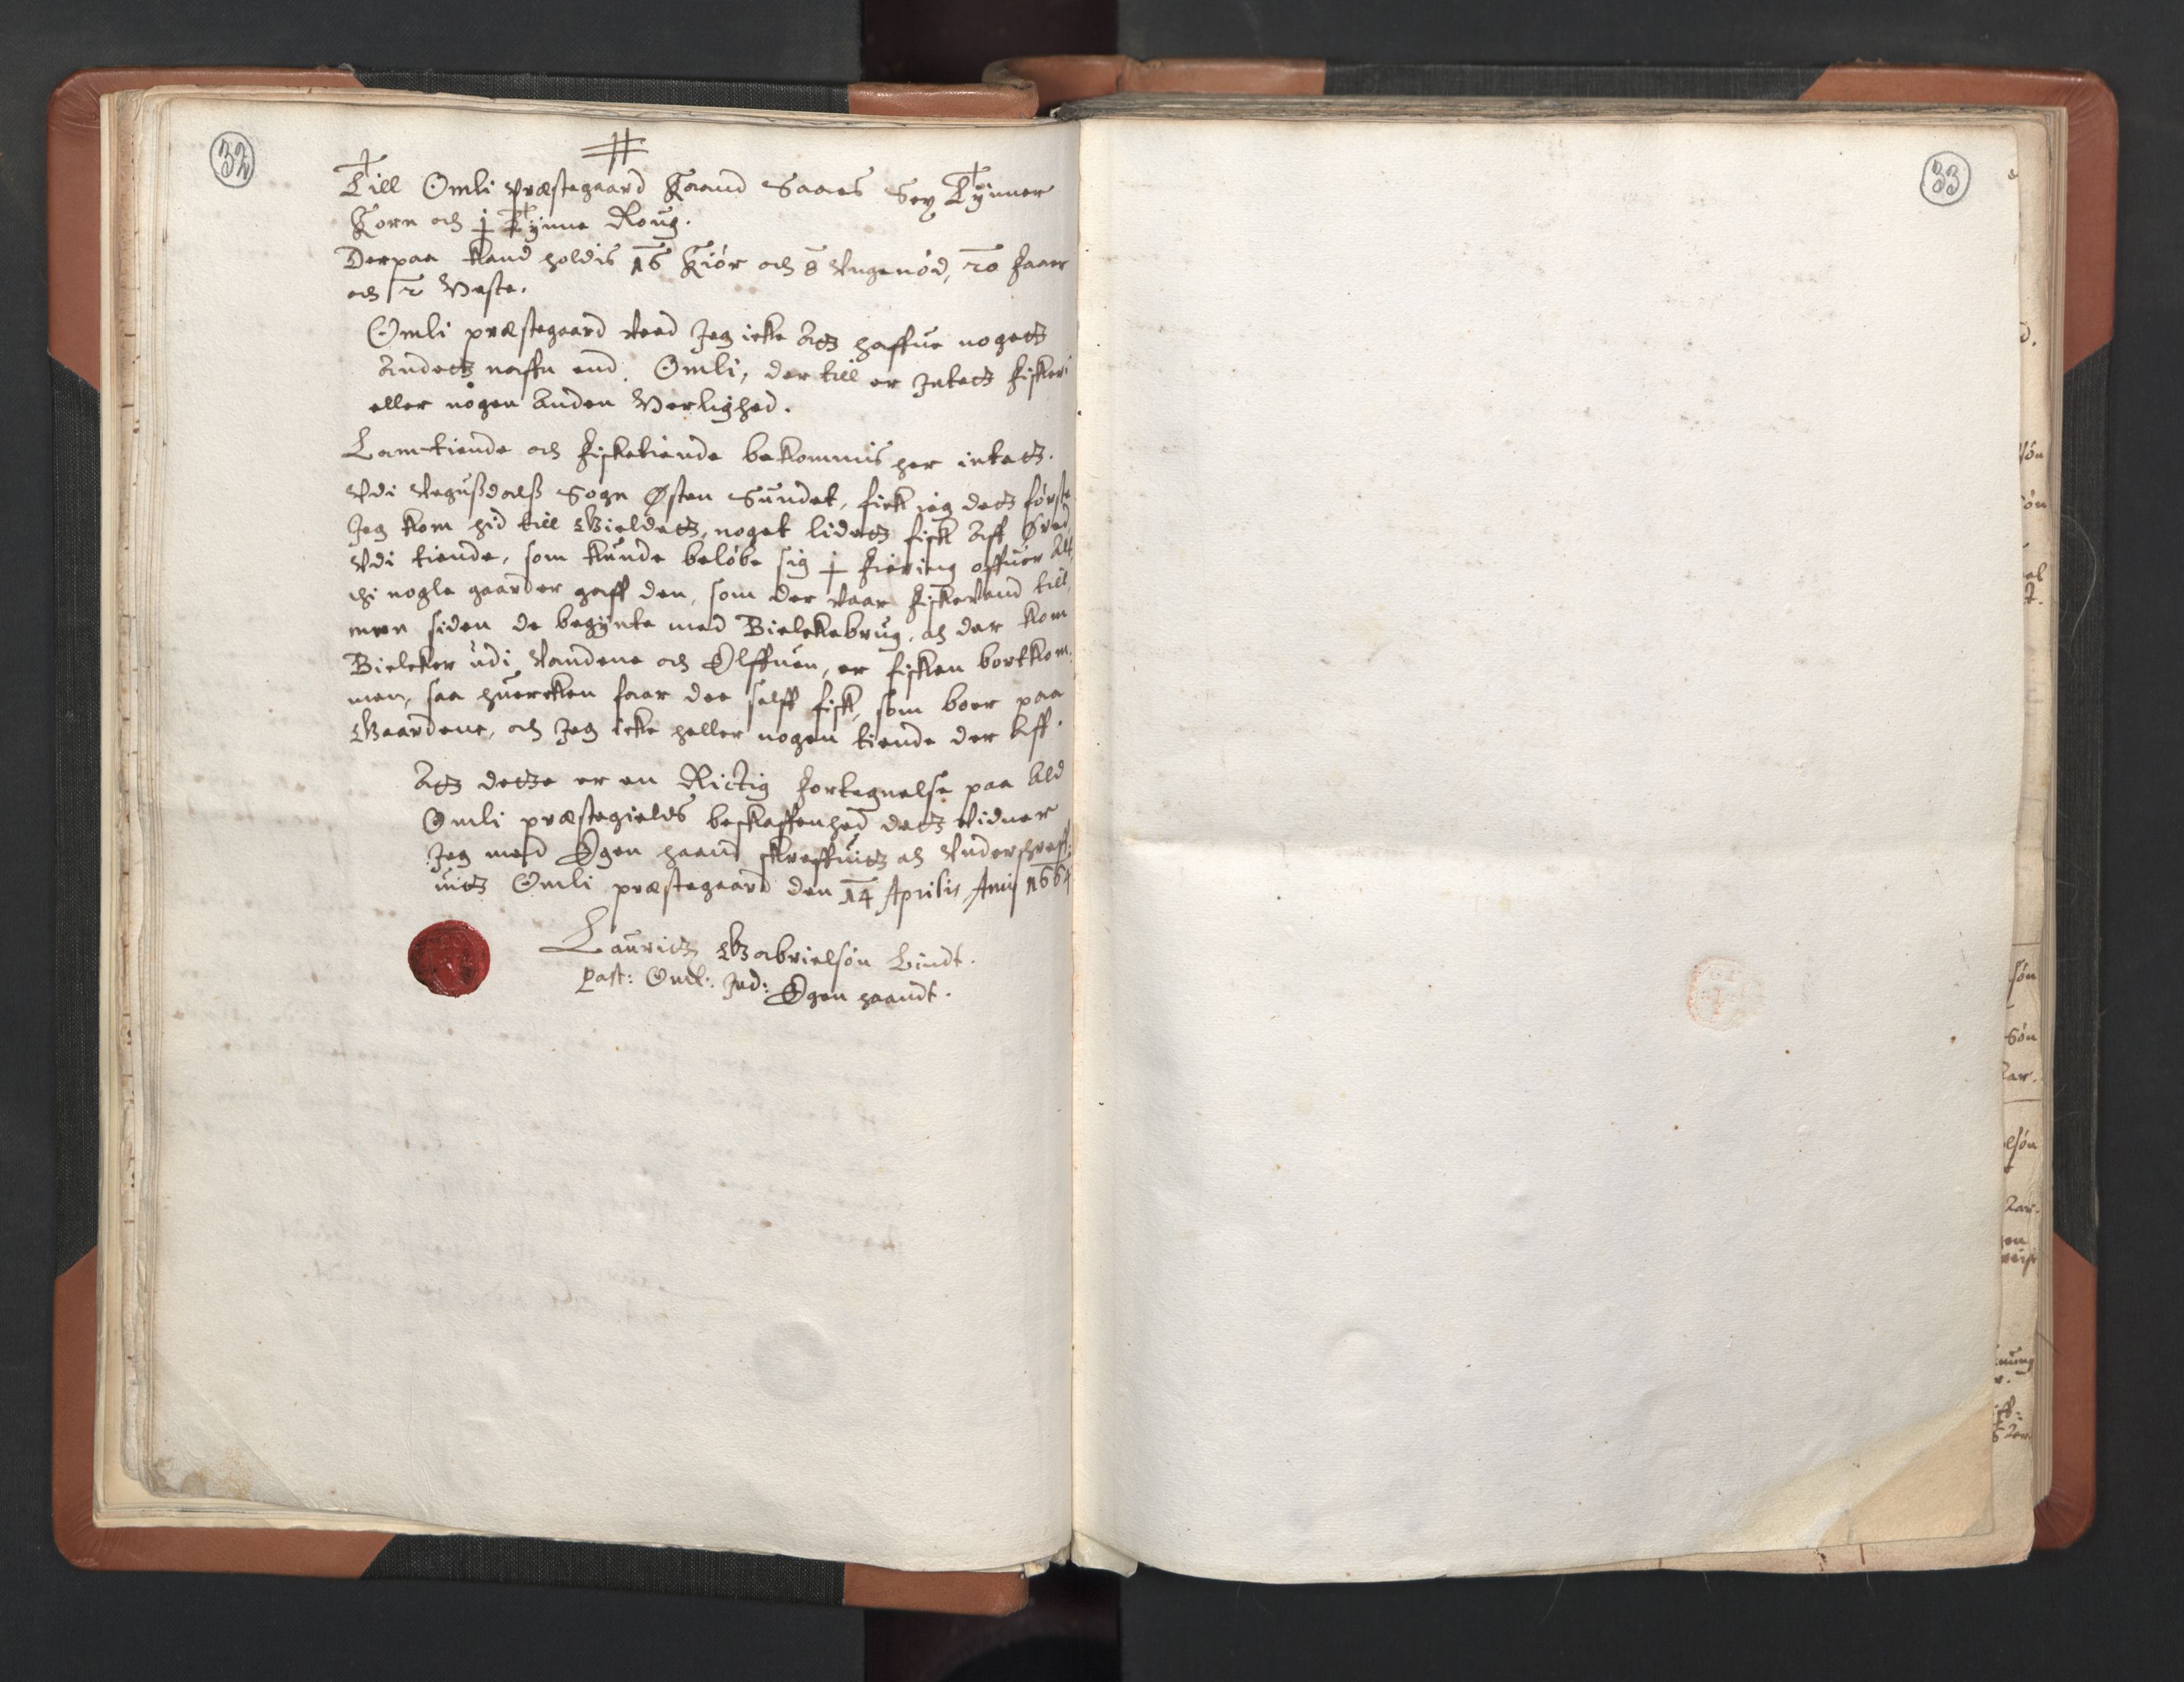 32
#
Till Omli Præstegaard Kaand Saaes Sex Tynner
Korn och j Tynne Roug.
Derpaa kand holdis 16 Kiór och 8 Ungenód, 20 faar
och 2 Heste.
Omli præstegaard veed Jeg icke Att haffue nogett
Andett naffn end Omli, der till er Jntett fiskeri
eller nogen Anden Herlighed.
Lam-tiende och fisketiende bekommis her intett.
Vdi Vegußdalß Sogn Østen Sundet, fick ieg dett fórste
Jeg kom hid till Gieldett, noget lidett fisk Aff Ørred
Vdi tiende, som kunde belóbe sig j fiering offuer Alt
thi nogle gaarder gaff den, som der vaar fiskevand till,
men siden de begynte med Bielckebrug, och der kom
Bielcker udi Vandene och Elffuen, er fisken bortkom-
men, saa huercken faar dee selff fisk, som boer paa
Gaardene, och Jeg icke heller nogen tiende der Aff.
Att dette er en Rictig fortegnelse paa Ald
Omli præstegields beskaffenhed dett vidner
Jeg med Egen haand skreffuitt och Underschreff-
uitt Omli præstegaard den 14 Aprilis Anno 1664
Lauritz Gabrielsón Lindt.
Past: Oml: Ind: Egen haandt.
33